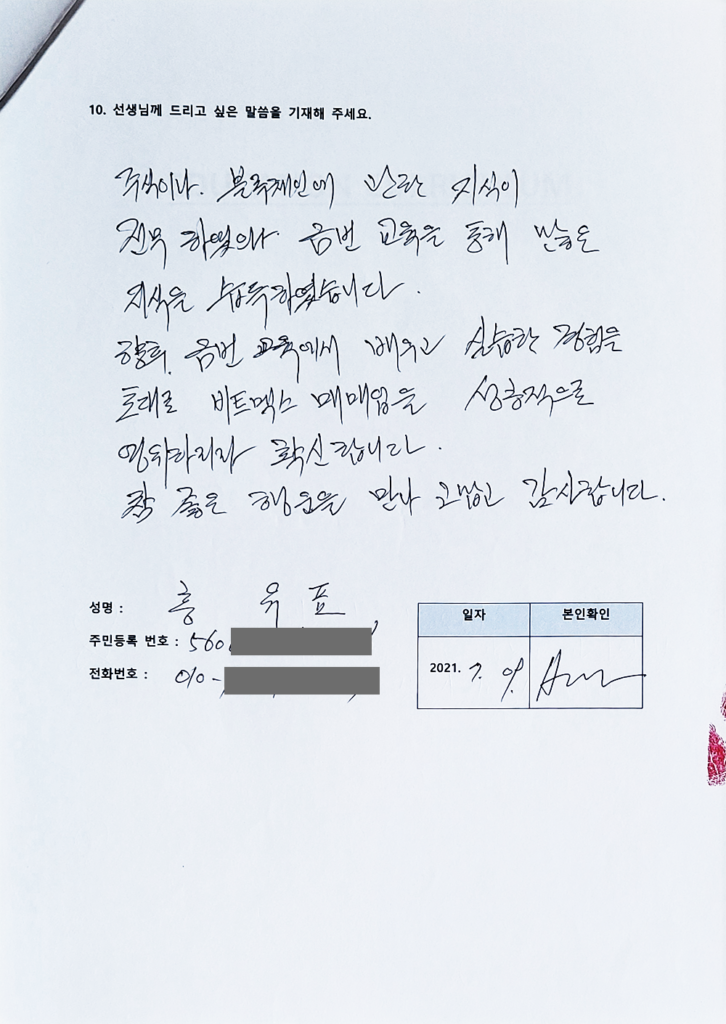 10. 선생님께 드리고 싶은 말씀을 기재해 주세요.
주식이나. 블록체인에 관한 지식이
전무 하였으나 금번 교육을 통해 많은
지식을 습득하였습니다.
향후, 금번 교육에서 배우고 실습한 경험을
토대로 비트멕스 매매업을 성공적으로
영위하리라 확신합니다.
참 좋은 행운을 만나 고맙고 감사합니다.
성명 : 홍 유 표
주민등록 번호 : 560
전화번호 : 010-
일자 본인확인
2021. 7. 9.